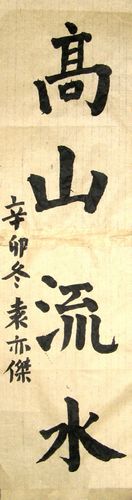 高山流水
辛卯冬袁亦傑